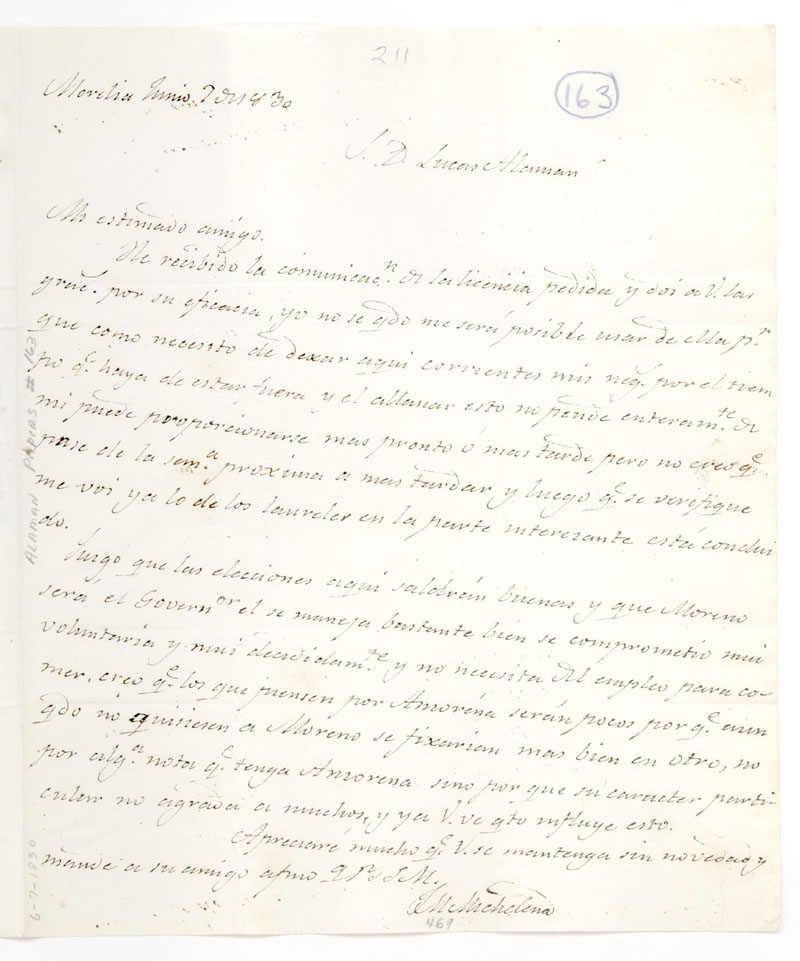 211
163
Morelia Junio 7 de 1830
S. D. Lucas Alaman
Mi estimado amigo.
He recibido la comunicacn. de la licencia pedida y doi a V. las
grac.s por su eficacia, yo no se qdo me será posible usar de ella pr.
que como necesito de dexar aqui corrientes mis neg.s por el tiem
po qe. haya de estar fuera y el allanar esto no pende enteramte. de
mi puede proporcionarse mas pronto ó mas tarde pero no creo qe.
pase de la sema. proxima a mas tardar y luego qe. se verifique
me voi ya lo de los laureles en la parte interezante está conclui
do.
Juzgo que las elecciones aqui saldrán buenas y que Moreno
será el Governor el se maneja bastante bien se comprometió mui
voluntaria y mui decididamte. y no necesita del empleo para co-
mer, creo qe. los que piensen por Anzorena serán pocos por qe. aun
qdo no quisiesen a Moreno se fixarian mas bien en otro, no
por alga. nota qe. tenga Anzorena sino por que su caracter parti-
cular no agrada a muchos, y ya V. ve qto influye esto.
Apreciaré mucho qe. V. se mantenga sin novedad y
mande a su amigo afmo Q B S M.
J M Michelena
469
ALAMAN PAPERS # 163
6-7-1830